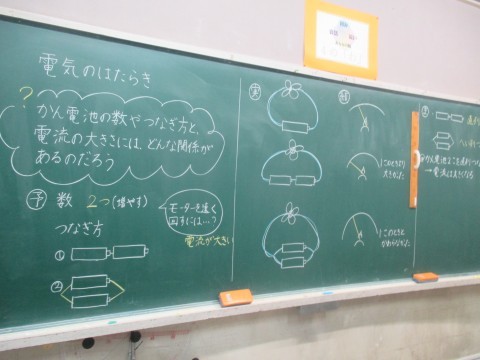 電気のはたらき
?
かん電池の数やつなぎ方と、
電流の大きさには、どんな関係が
あるのだろう
予 数 2つ(増やす)
つなぎ方
①
②
モーターを速く
回すには…?
電流が大きい
実
結
1このときより
大きかった
1このときと
かわらなかった
かん電池2こを直列つな
→電流は大きくなる